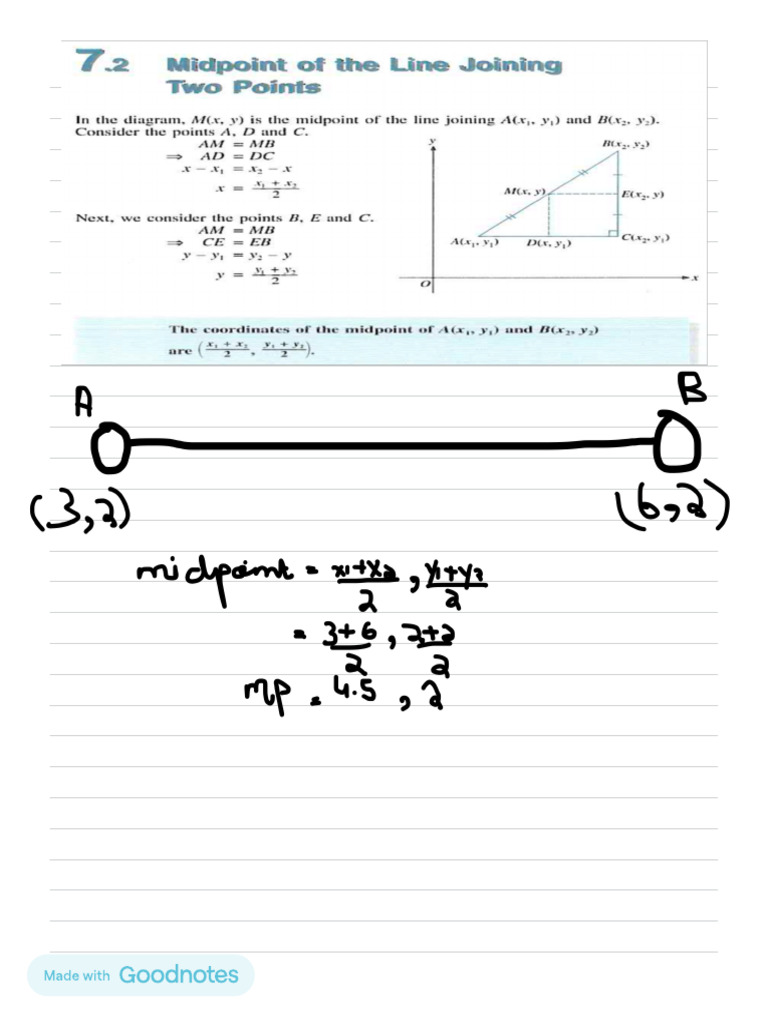 7.2 Midpoint of the Line Joining
Two Points
In the diagram, M(x, y) is the midpoint of the line joining A(x₁, y₁) and B(x₂, y₂).
Consider the points A, D and C.
AM = MB
⇒ AD = DC
x − x₁ = x₂ − x
x = (x₁ + x₂)/2
Next, we consider the points B, E and C.
AM = MB
⇒ CE = EB
y − y₁ = y₂ − y
y = (y₁ + y₂)/2
y
B(x₂, y₂)
M(x, y)
E(x₂, y)
A(x₁, y₁)
D(x, y₁)
C(x₂, y₁)
O
x
The coordinates of the midpoint of A(x₁, y₁) and B(x₂, y₂)
are ((x₁ + x₂)/2, (y₁ + y₂)/2).
A B
(3,2) (6,2)
midpoint = (x1+x2)/2, (y1+y2)/2
= (3+6)/2, (2+2)/2
mp = 4.5, 2
Made with Goodnotes